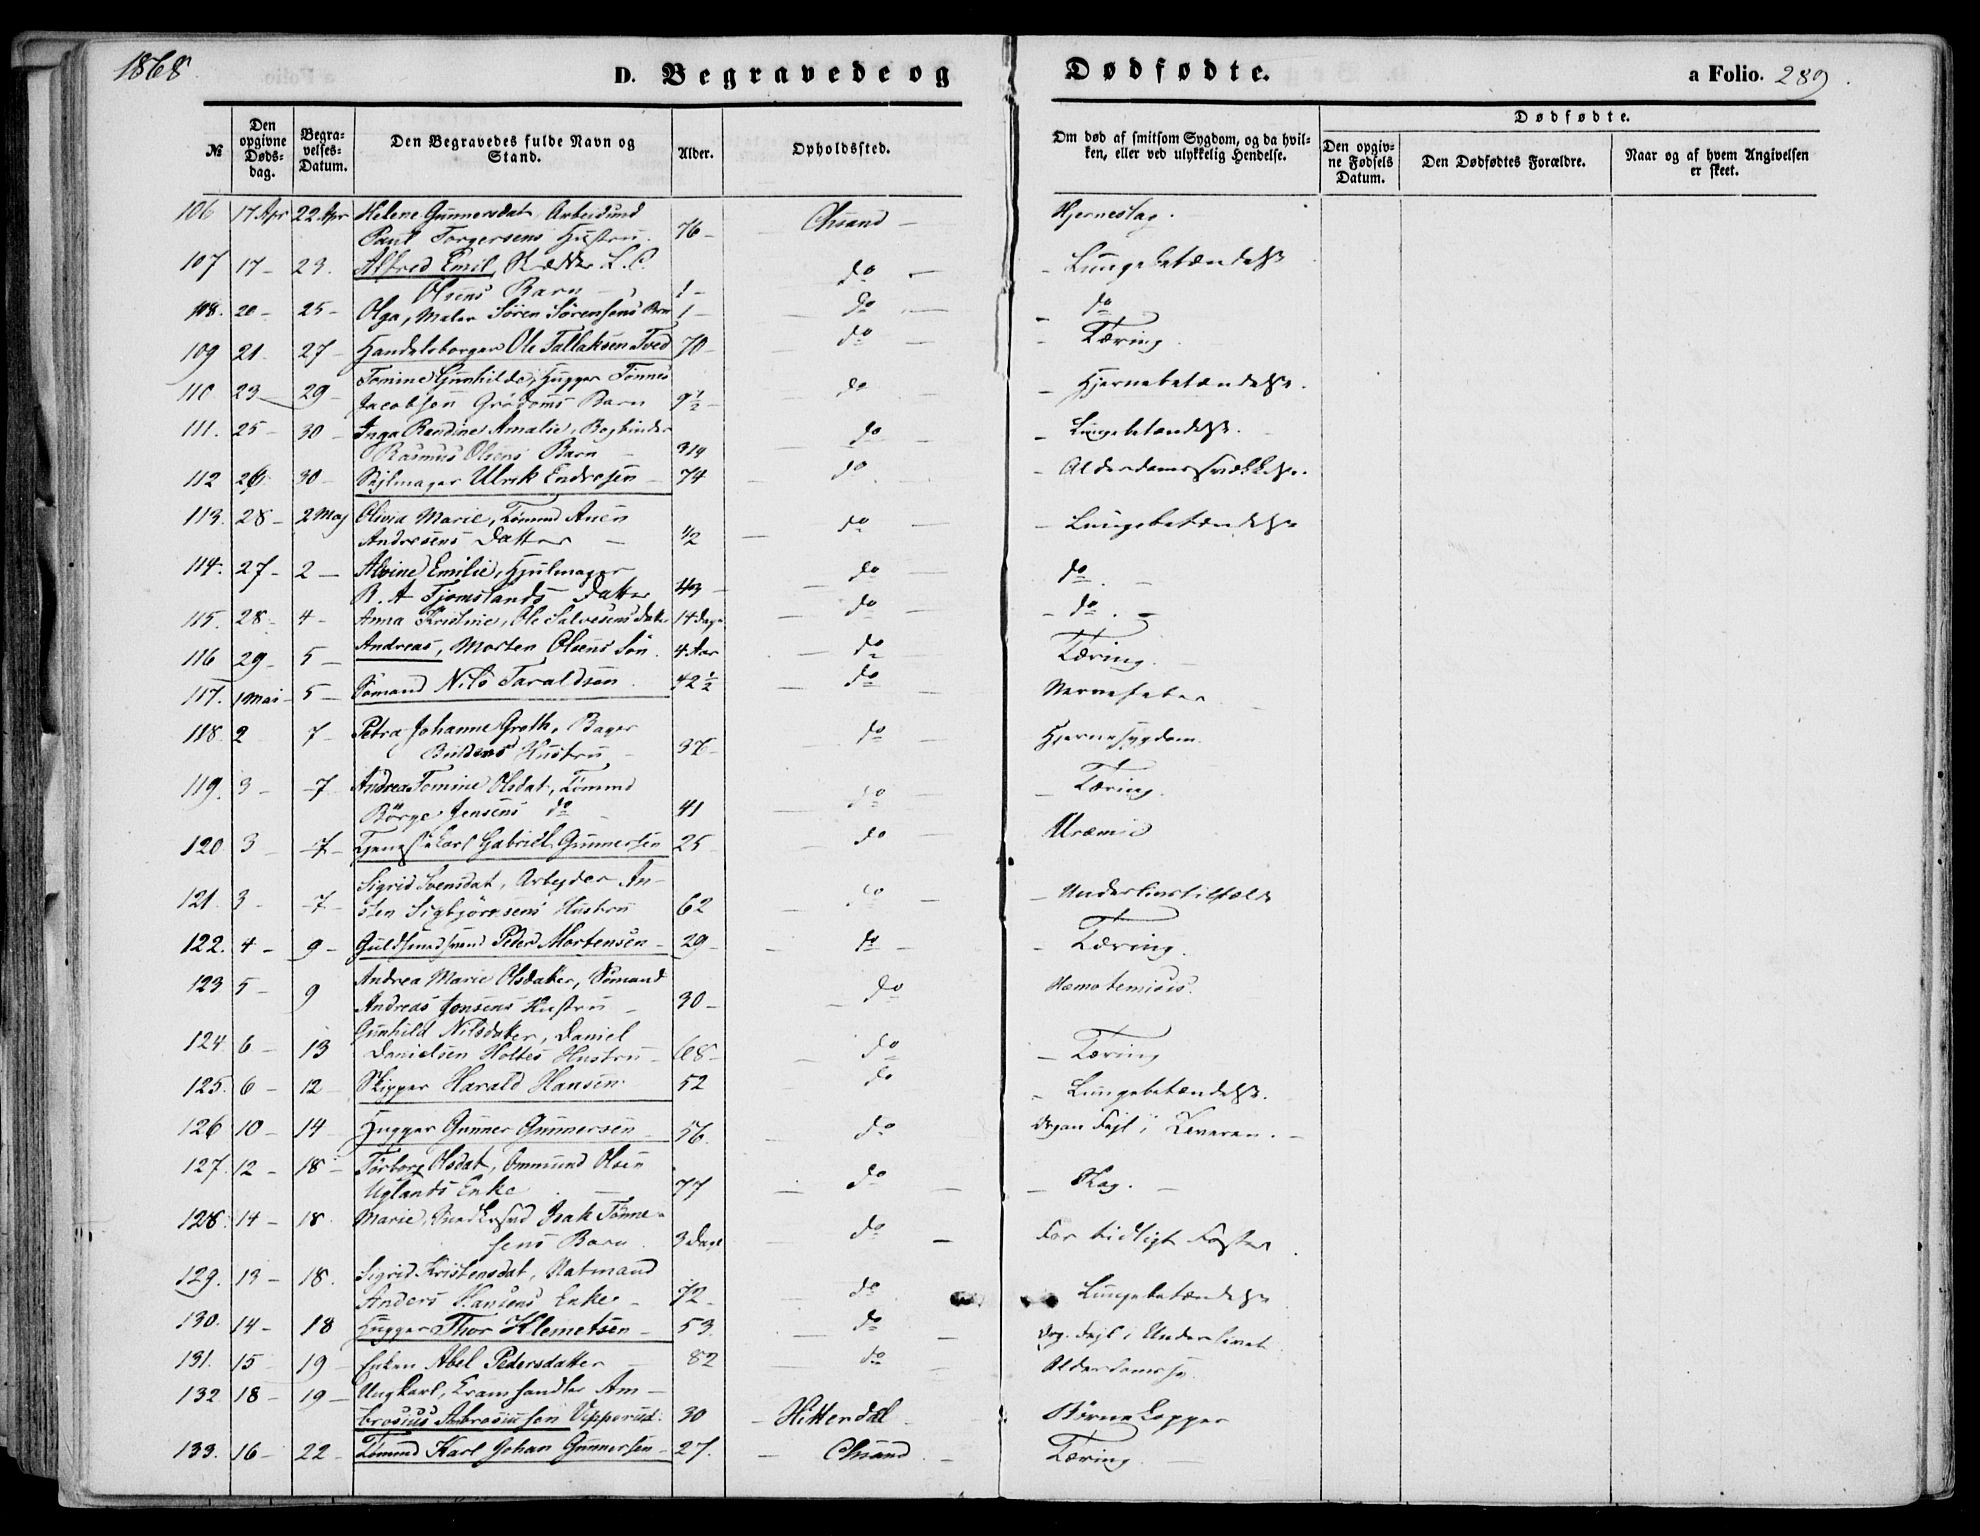 1868.
D. Begravede og Dødfødte.
a Folio. 289.
№
Den opgivne Døds-dag.
Begra-velses-Datum.
Den Begravedes fulde Navn og Stand.
Alder.
Opholdssted.
Om død af smitsom Sygdom, og da hvil-ken, eller ved ulykkelig Hendelse.
Dødfødte.
Den opgiv-ne Fødsels Datum.
Den Dødfødtes Forældre.
Naar og af hvem Angivelsen er skeet.
106 17 Apr 22 Apr Helene Gunnersdat, Arbeidsmd
Paul Torgersens Hustru. 76 - Chsand - Hjerneslag.
107 17 - 23. Alfred Emil, Skrædder L. C.
Olsens Barn - 1 - do - Lungebetændelse
108. 20 - 25 - Olga, Maler Søren Sørensens Barn 1 - do - do
109 21 27 - Handelsborger Ole Tallaksen Tved 70 - do - Tæring.
110 23 29 - Tomine Gunhilde, Hugger Tönnes
Jacobsen Grödems Barn 9½ - do - Hjernebetændelse.
111. 25 - 30 - Inga Bendine Amalie, Bogbinder
Rasmus Olsens Barn - 3/4 - do - Lungebetændelse.
112 26 30 - Sejlmager Ulrik Endresen - 74 - do - Alderdomssvækkelse.
113. 28 - 2 Maj Olivia Marie, Tömmd Auen
Andresens Datter - ½ - do - Lungebetændelse
114. 27 - 2 - Alvine Emilie, Hjulmager
B. A Tjomslands Datter 4/3 - do - do. -
115. 28 - 4 - Anna Kristine, Ole Salvesens Datter 14 Dage - do - do. -
116 29 - 5 - Andreas, Morten Olsens Sön. 4 Aar - do - Tæring. -
117. 1 Mai - 5 - Sömand Nils Taraldsen. 42½ - do - Nervefeber
118. 2 7 - Petra Johanne Groth, Bager
Hustru - 37 - do - Hjernesygdom
119. 3 - 7 Andrea Tomine Olsdat, Tömmd
Börge Jensens do - 41 do - Tæring.
120 3 - 7 - Tjenestekarl Gabriel Gunnersen 25 - do - Uræmie
121. 3 - 7 - Sigrid Svensdat, Arbejder An-
sten Sigbjörnsens Hustru 62 - do - Underlivstilfælde
122. 4 - 9 - Guldsmedsvend Peder Mortensen - 29 - do - Tæring.
123 5 - 9 Andrea Marie Olsdatter, Sömand
Andreas Jensens Hustru - 30 - do Hæmatemisis.
124. 6 - 13 Gunhild Nilsdatter, Daniel
Danielsen Holtes Hustru - 68 - do - Tæring
125. 6 - 12 - Skipper Harald Hansen. 52 do - Lungebetændelse.
126 10 - 14 - Hugger Gunner Gunnersen 56. - do Organ Fejl i Leveren. -
127. 12 - 18 - Törborg Olsdat, Ommund Olsen
Uglands Enke. - 77 - do - Slag. -
128. 14 - 18. Marie, Snedkersvd Isak Tönne-
sens Barn. 3 Dage do - For tidligt Foster.
129. 13 - 18. Sigrid Kristensdat, Matmand
Anders Hansens Enke - 72 - do Lungebetændelse
130. 14 - 18 Hugger Thor Klemetsen - 53. - do - Org. Fejl i Underlivet.
131. 15 - 19 - Enken Abel Pedersdatter - 82 - do - Alderdomssv.
132 18 - 19 - Ungkarl, Kramhandler Am-
brosius Ambrosiussen Vipperud. 30 - Hitterdal Börnekopper
133. 16 - 22 - Tömmd Karl Johan Gunnersen - 27. - Chsand. - Tæring. -